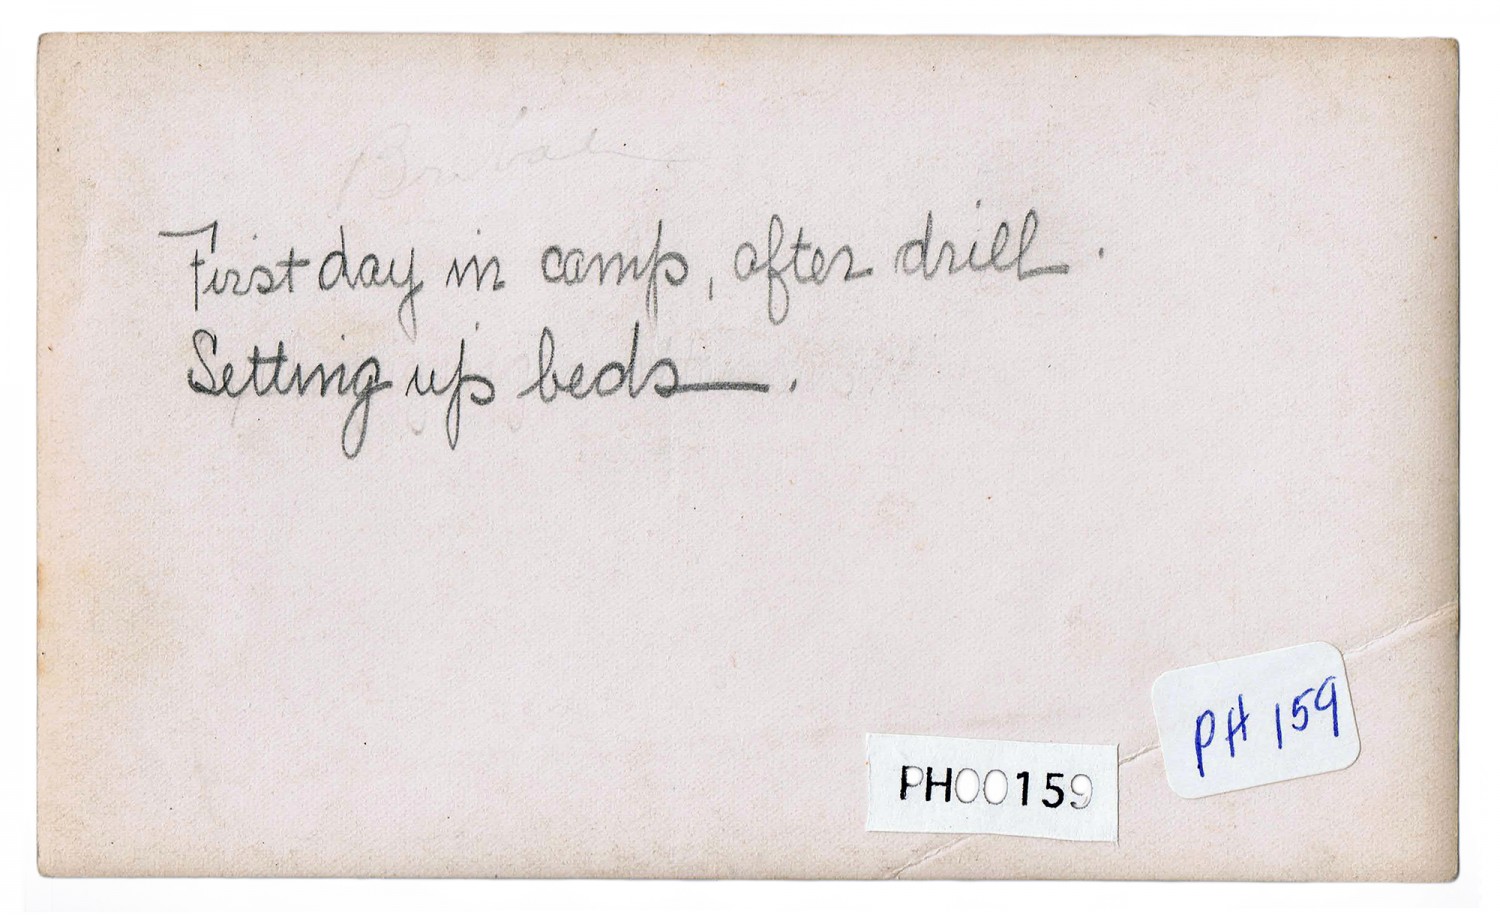 First day in camp, after drill.
Setting up beds.
PH 159
PH00159